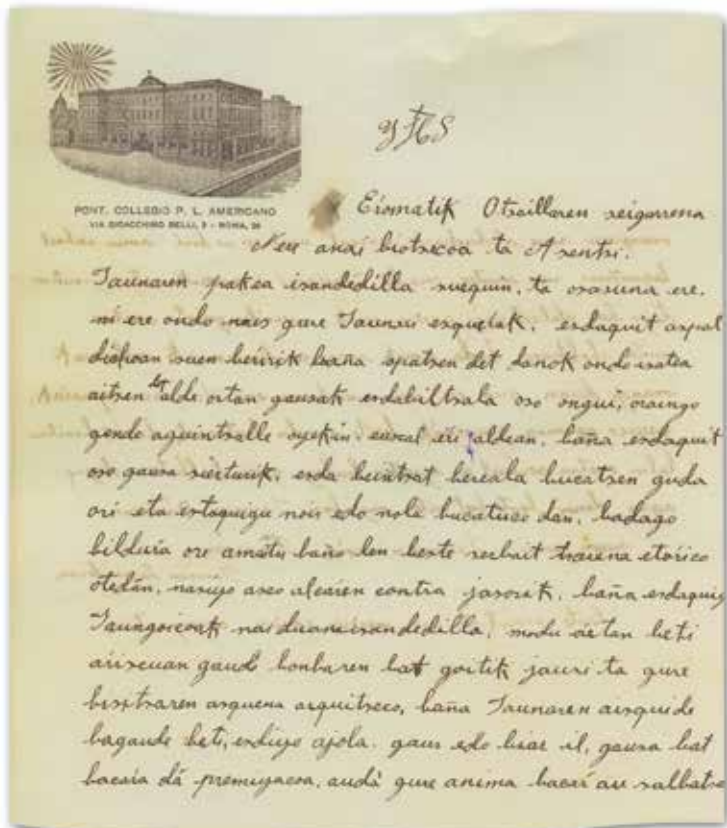 JHS
PONT. COLLEGIO P. L. AMERICANO
VIA GIOACCHINO BELLI, 3 - ROMA, 26
Erromatik Otsaillaren seigarrena
Nere anai biotzecoa ta Asentsi.
Jaunaren pakea izandedilla zuequin, ta osasuna ere,
ni ere ondo nais gure Jaunari esquerak, esdaquit azpal
diohoan zuen berririk baña opatzen det danok ondo izatea
aitzen det alde ortan gausak esdabiltzala oso ongui, oraingo
gende aguintzalle oyekin, euscal erri aldean, baña esdaquit
oso gausa siurturik, esda beintzat bereala bucatzen guda
ori eta estaquigu nois edo nola bucatuco dan, badago
bildurra ori amatu baño len beste zerbait txarrena etorico
otedan, naziyo asco alcarren contra jazorik, baña esdaquigu
Jaungoicoak nai duana izandedilla, modu orretan beti
arriscuan gaude bonbaren bat goitik jausi ta gure
bizitzaren asquena arquitzeco, baña Jaunaren aisquide
bagaude beti, esdiyo ajola gaur edo biar il, gausa bat
bacarra dá premiyacoa, audá gure anima bacar au salbatze